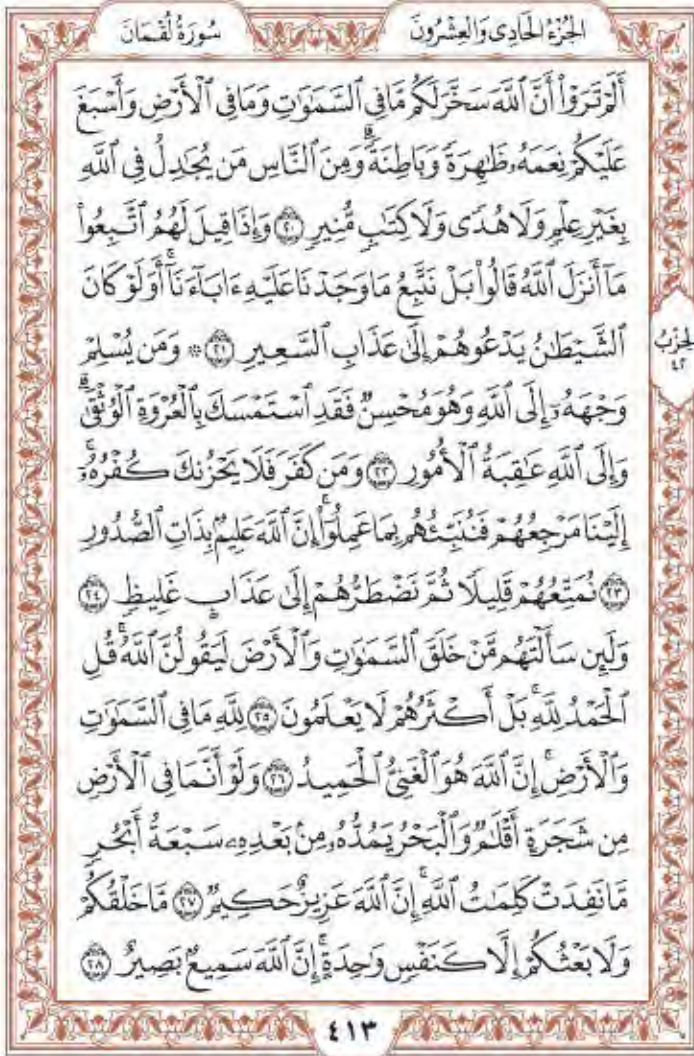 الجُزْءُ الحَادِى وَالعِشْرُونَ
سُورَةُ لُقْمَانَ
أَلَمْ تَرَوْا۟ أَنَّ ٱللَّهَ سَخَّرَ لَكُم مَّا فِى ٱلسَّمَٰوَٰتِ وَمَا فِى ٱلْأَرْضِ وَأَسْبَغَ
عَلَيْكُمْ نِعَمَهُۥ ظَٰهِرَةً وَبَاطِنَةًۗ وَمِنَ ٱلنَّاسِ مَن يُجَٰدِلُ فِى ٱللَّهِ
بِغَيْرِ عِلْمٍ وَلَا هُدًى وَلَا كِتَٰبٍ مُّنِيرٍ ٢٠ وَإِذَا قِيلَ لَهُمُ ٱتَّبِعُوا۟
مَآ أَنزَلَ ٱللَّهُ قَالُوا۟ بَلْ نَتَّبِعُ مَا وَجَدْنَا عَلَيْهِ ءَابَآءَنَآۚ أَوَلَوْ كَانَ
ٱلشَّيْطَٰنُ يَدْعُوهُمْ إِلَىٰ عَذَابِ ٱلسَّعِيرِ ٢١ ۞ وَمَن يُسْلِمْ
وَجْهَهُۥٓ إِلَى ٱللَّهِ وَهُوَ مُحْسِنٌ فَقَدِ ٱسْتَمْسَكَ بِٱلْعُرْوَةِ ٱلْوُثْقَىٰۗ
وَإِلَى ٱللَّهِ عَٰقِبَةُ ٱلْأُمُورِ ٢٢ وَمَن كَفَرَ فَلَا يَحْزُنكَ كُفْرُهُۥٓۚ
إِلَيْنَا مَرْجِعُهُمْ فَنُنَبِّئُهُم بِمَا عَمِلُوٓا۟ۚ إِنَّ ٱللَّهَ عَلِيمٌۢ بِذَاتِ ٱلصُّدُورِ
٢٣ نُمَتِّعُهُمْ قَلِيلًا ثُمَّ نَضْطَرُّهُمْ إِلَىٰ عَذَابٍ غَلِيظٍ ٢٤
وَلَئِن سَأَلْتَهُم مَّنْ خَلَقَ ٱلسَّمَٰوَٰتِ وَٱلْأَرْضَ لَيَقُولُنَّ ٱللَّهُۚ قُلِ
ٱلْحَمْدُ لِلَّهِۚ بَلْ أَكْثَرُهُمْ لَا يَعْلَمُونَ ٢٥ لِلَّهِ مَا فِى ٱلسَّمَٰوَٰتِ
وَٱلْأَرْضِۚ إِنَّ ٱللَّهَ هُوَ ٱلْغَنِىُّ ٱلْحَمِيدُ ٢٦ وَلَوْ أَنَّمَا فِى ٱلْأَرْضِ
مِن شَجَرَةٍ أَقْلَٰمٌ وَٱلْبَحْرُ يَمُدُّهُۥ مِنۢ بَعْدِهِۦ سَبْعَةُ أَبْحُرٍ
مَّا نَفِدَتْ كَلِمَٰتُ ٱللَّهِۚ إِنَّ ٱللَّهَ عَزِيزٌ حَكِيمٌ ٢٧ مَّا خَلْقُكُمْ
وَلَا بَعْثُكُمْ إِلَّا كَنَفْسٍ وَٰحِدَةٍۗ إِنَّ ٱللَّهَ سَمِيعٌۢ بَصِيرٌ ٢٨
الحِزْبُ
٤٢
٤١٣